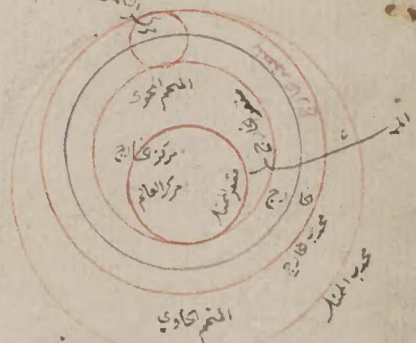 المتمم المحوي
مركز خارج
مركز العالم
مقعر الممثل
خارج
محدب خارج
محدب الممثل
المتمم الحاوي